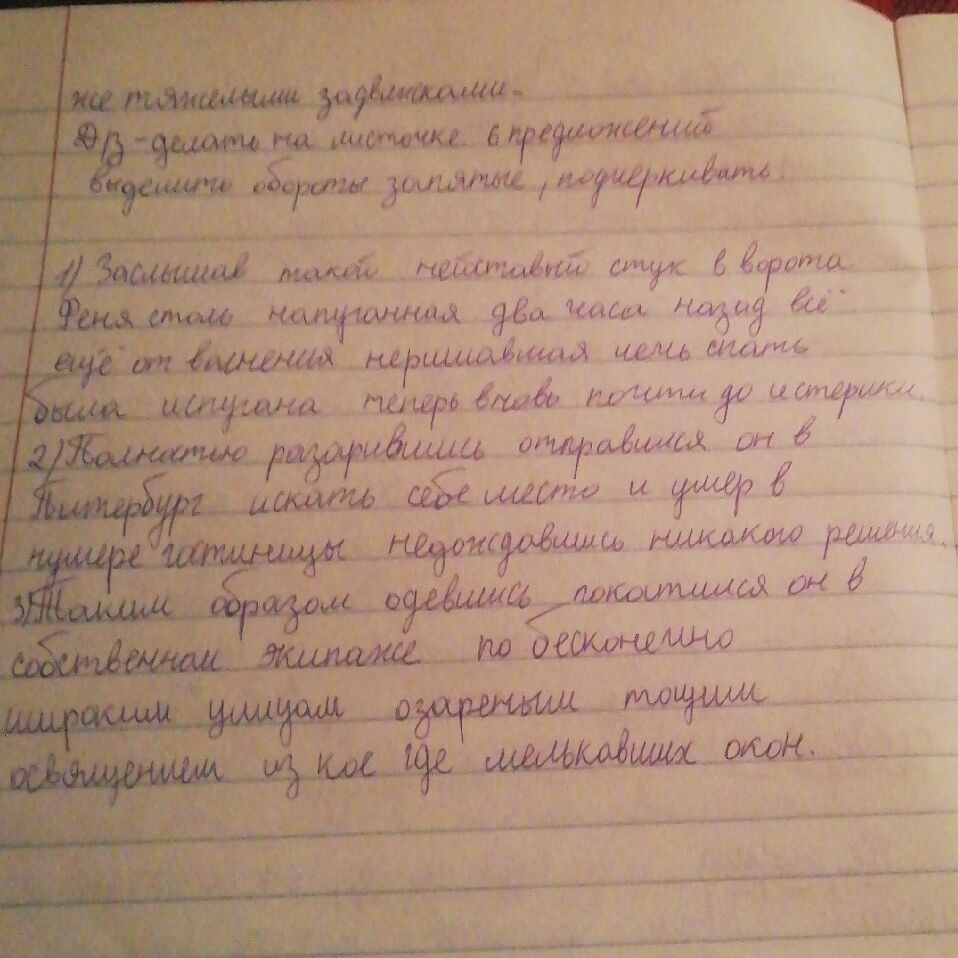 же тяжелыми задвижками.
ДЗ - делать на листочке 6 предложений
выделить обороты запятые, подчеркивать.
1) Заслышав такой нейстовый стук в ворота
Феня столь напуганная два часа назад всё
ещё от волнения нершавшая лечь спать
была испугана теперь вновь почти до истерики.
2) Полностью разарившись отправился он в
Питербург искать себе место и умер в
нумере гостиницы недождавшись никакого решения.
3) Таким образом одевшись покатился он в
собственном экипаже по бесконечно
шираким улицам озареным тощим
освящением из кое где мелькавших окон.